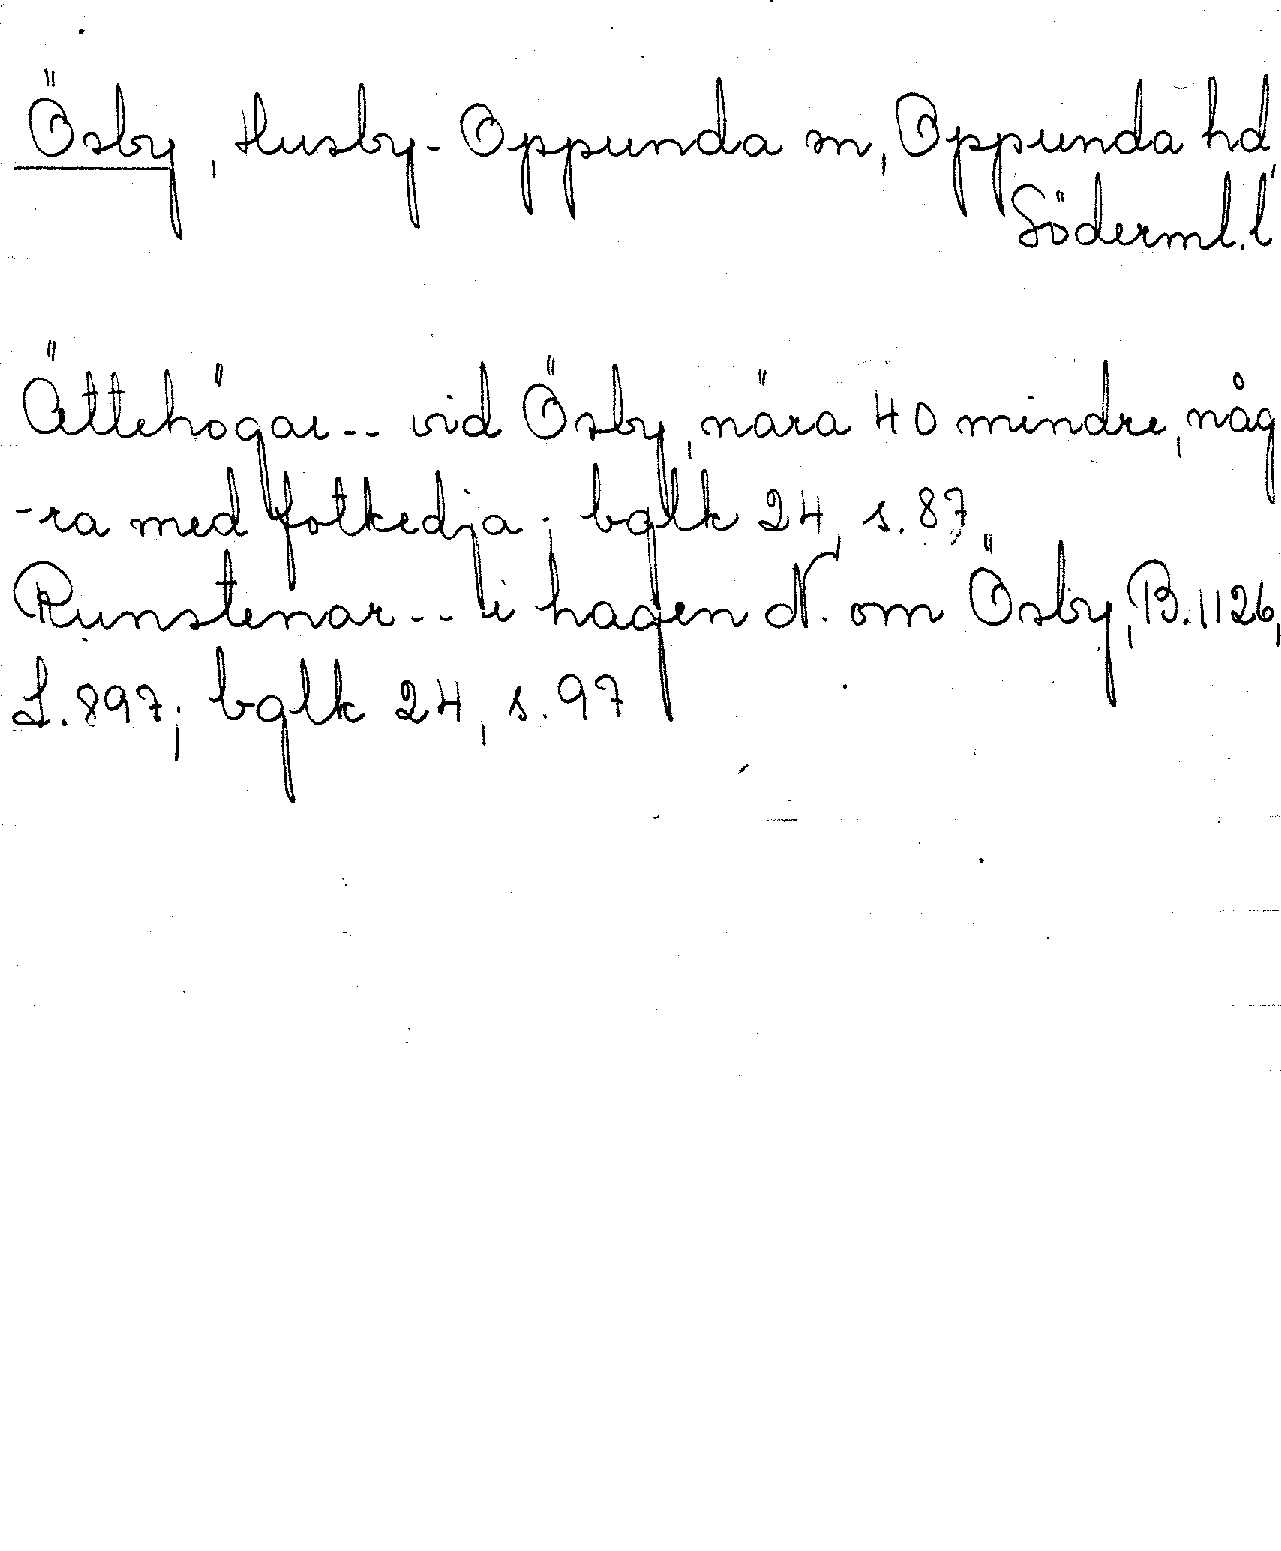 Ösby, Husby-Oppunda sn, Oppunda hd,
Söderml. l
Ättehögar -- vid Ösby, nära 40 mindre, någ
-ra med fotkedja; bglk 24, s. 87
Runstenar -- i hagen N. om Ösby, B. 1126,
L. 897; bglk 24, s. 97